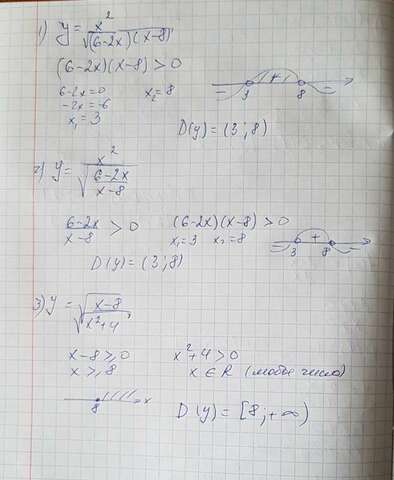 1) y = x² / √((6-2x)(x-8))
(6-2x)(x-8) > 0
6-2x=0   x₂ = 8
-2x=-6
x₁ = 3
- + -
3 8
D(y) = (3; 8)
2) y = x² / √((6-2x)/(x-8))
(6-2x)/(x-8) > 0   (6-2x)(x-8) > 0
x₁=3   x₂=8
- + -
3 8
D(y) = (3; 8)
3) y = √((x-8)/(x²+4))
x-8 ≥ 0   x²+4 > 0
x ≥ 8   x ∈ R (любые числа)
8 x
D(y) = [8; +∞)